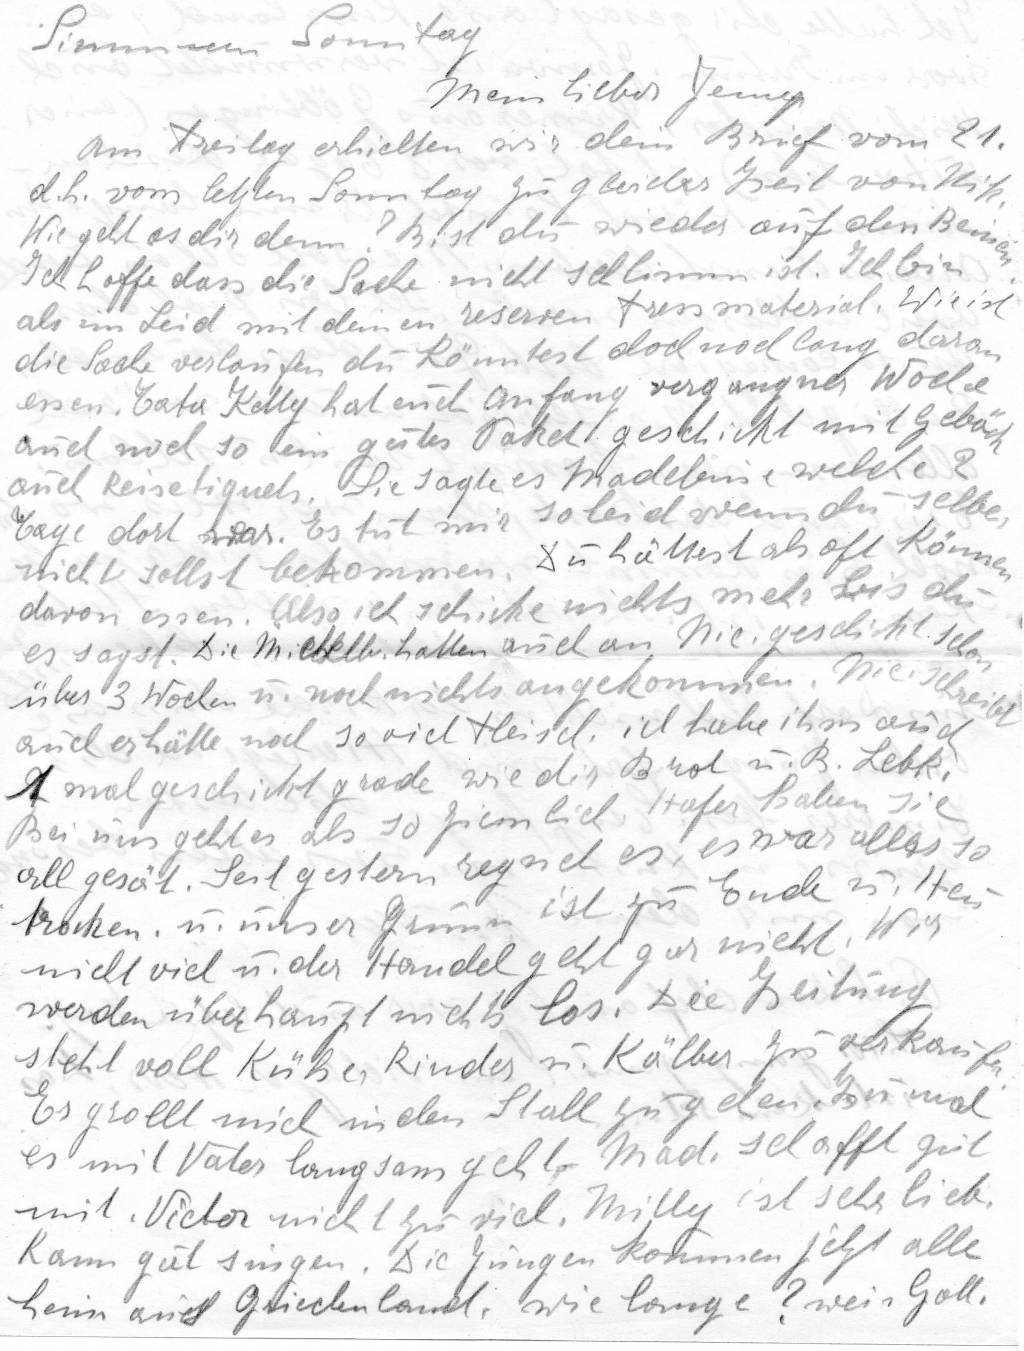 Simmern Sonntag
Mein lieber Jemp
Am Freitag erhielten wir dein Brief vom 21.
d.h. vom letzten Sonntag zu gleicher Zeit von Nik.
Wie geht es dir denn? Bist du wieder auf den Beinen.
Ich hoffe dass die Sache nicht schlimm ist. Ich bin
als im Leid mit deinen reserven Fressmaterial. Wie ist
die Sache verlaufen du könntest doch noch lang daran
essen. Tata Ketty hat euch Anfang vergangner Woche
auch noch so ein gutes Paket geschickt mit Gebäck
auch Reisetiquets. Sie sagte es Madeleine welche 2
Tage dort war. Es tut mir so leid wenn du selber
nichts sollst bekommen. Du hättest als oft können
davon essen. Also ich schicke nichts mehr bis du
es sagst. Die Michelb. hatten auch an Nic. geschickt schon
über 3 Wochen u. noch nichts angekommen. Nic. schreibt
auch erhätte noch so viel Fleisch. ich habe ihm auch
1 mal geschickt grade wie dir Brot u. B. Lebk.
Bei uns geht es als so ziemlich. Hafer haben sie
all gesät. Seit gestern regnet es, es war alles so
trocken. u. unser Grünn ist zu Ende u. Heu
nicht viel u. der Handel geht gar nicht. Wir
werden überhaupt nichts los. Die Zeitung
steht voll Kühe, Rinder u. Kälber zu verkaufen.
Es grollt mich in den Stall zu gehen. Zumal
es mit Vater langsam geht. Mad. schafft gut
mit. Victor nicht zu viel. Milly ist sehr lieb.
Kann gut singen. Die Jungen kommen jetzt alle
heim aus Griechenland. wie lange? weis Gott.